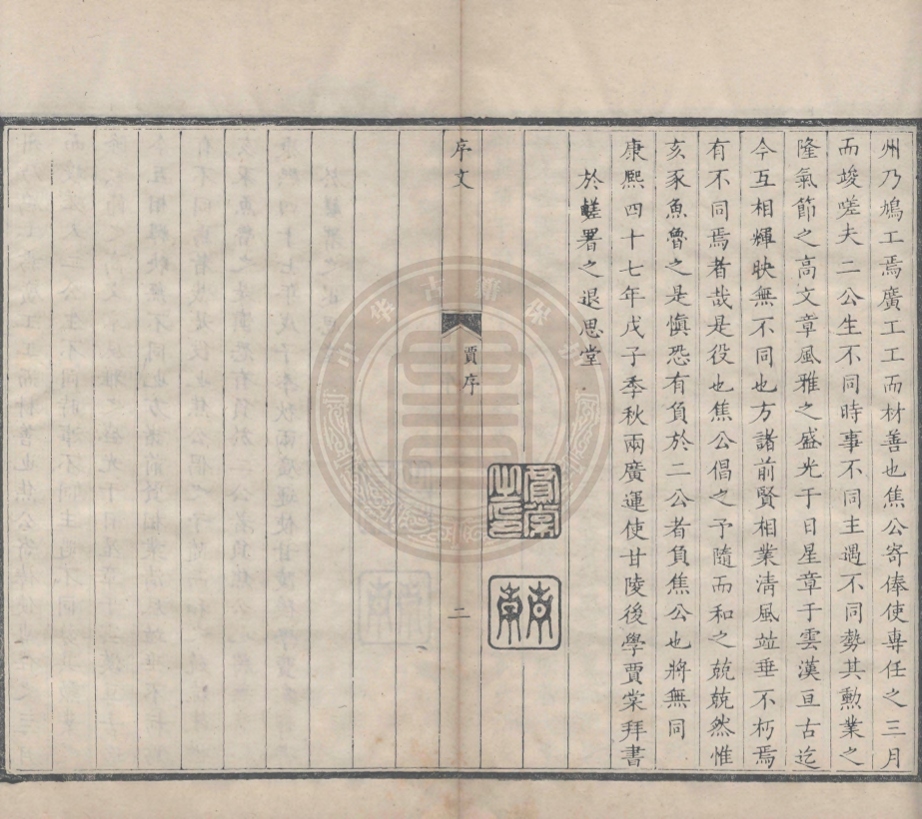 州乃鳩工焉廣工工而材善也焦公寄俸使專任之三月
而竣嗟夫二公生不同時事不同主遇不同勢其勳業之
隆氣節之高文章風雅之盛光于日星章于雲漢亘古迄
今互相輝映無不同也方諸前賢相業清風竝垂不朽焉
有不同焉者哉是役也焦公倡之予隨而和之兢兢然惟
亥豕魚魯之是慎恐有負於二公者負焦公也將無同
康熙四十七年戊子季秋兩廣運使甘陵後學賈棠拜書
於鹺署之退思堂
序文
賈序
二
賈棠之印
古新